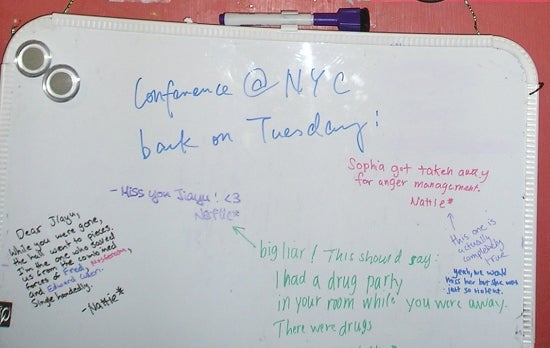 Conference @ NYC
back on Tuesday!
- Miss you Jiayu! <3
Nattie*
Sophia got taken away
for anger management.
Nattie*
this one is
actually
completely
true
yeah, we would
miss her but she was
just so violent.
Dear Jiayu,
While you were gone,
the hall went to pieces.
I'm the one who saved
us from the combined
forces of Fred, Nosferatu,
and Edward Cullen.
Single handedly.
- Nattie*
big liar! This should say:
I had a drug party
in your room while you were away.
There were drugs